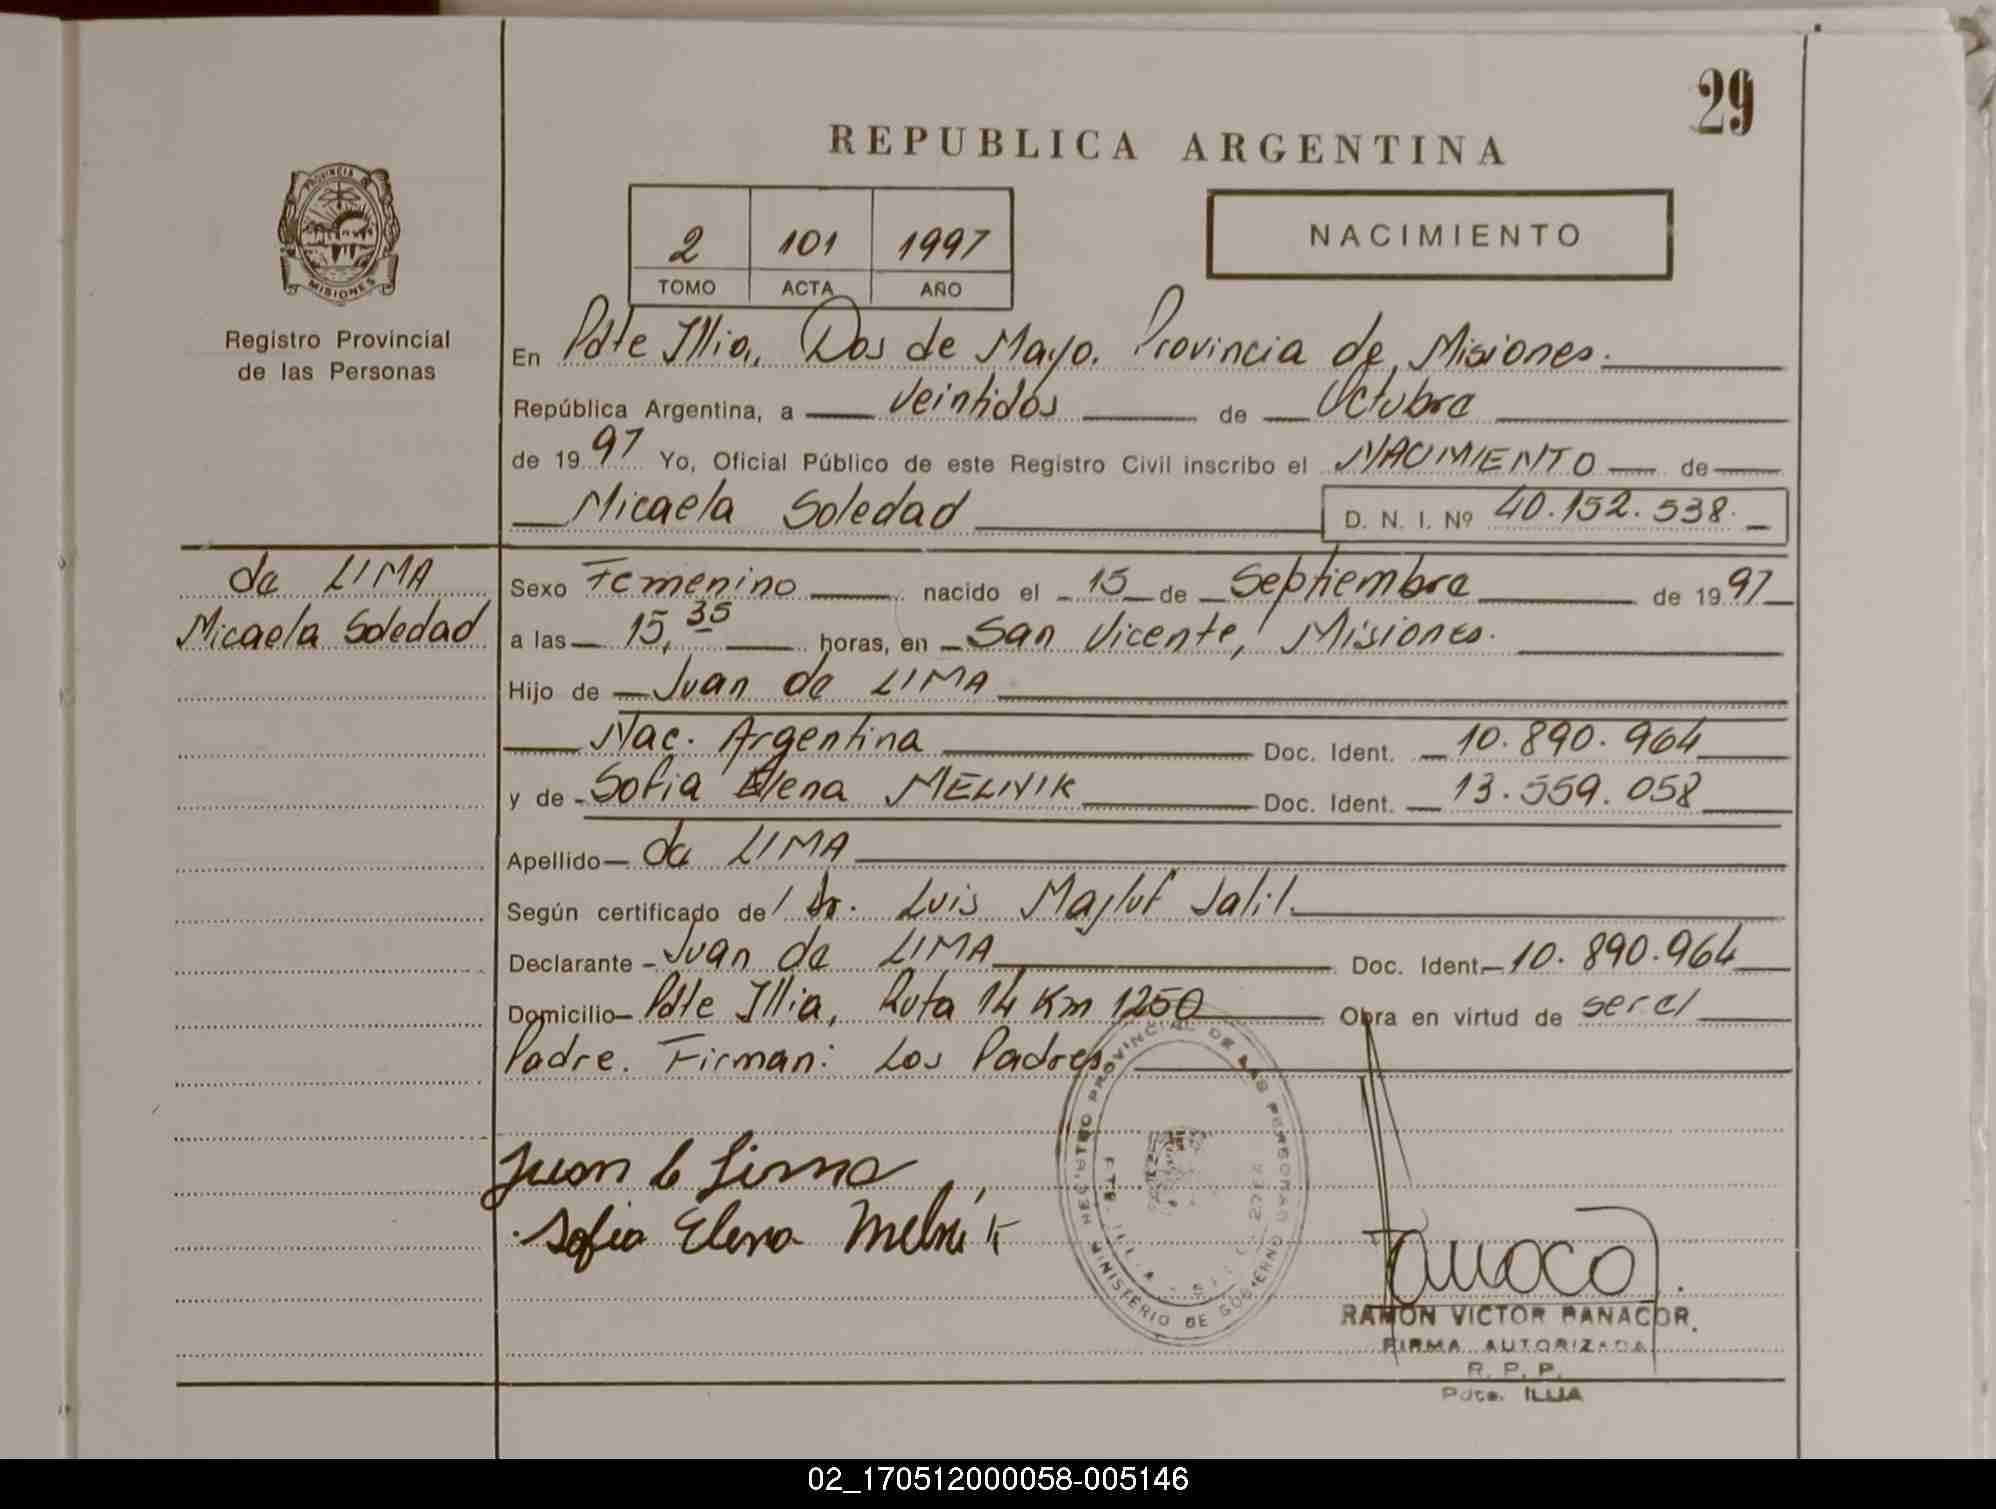 29
REPUBLICA ARGENTINA
PROVINCIA DE
MISIONES
Registro Provincial
de las Personas
2 101 1997
TOMO ACTA AÑO
NACIMIENTO
En Pdte Illia, Dos de Mayo. Provincia de Misiones.
República Argentina, a veintidos de Octubre
de 1997 Yo, Oficial Público de este Registro Civil inscribo el NACIMIENTO de
Micaela Soledad D. N. I. Nº 40.152.538.
da LIMA
Micaela Soledad
Sexo Femenino nacido el 15 de Septiembre de 1997
a las 15,35 horas, en San Vicente, Misiones.
Hijo de Juan da LIMA
Nac. Argentina Doc. Ident. 10.890.964
y de Sofia Elena MELNIK Doc. Ident. 13.559.058
Apellido da LIMA
Según certificado de Dr. Luis Majluf Jalil.
Declarante Juan da LIMA Doc. Ident. 10.890.964
Domicilio Pdte Illia, Ruta 14 Km 1250 Obra en virtud de ser el
Padre. Firman: Los Padres.
REGISTRO PROVINCIAL DE LAS PERSONAS
MINISTERIO DE GOBIERNO
PTE. ILLIA
Juan d Lima
Sofia Elena Melnik
RAMON VICTOR PANACOR.
FIRMA AUTORIZADA
R. P. P.
Pdte. ILLIA
02_170512000058-005146